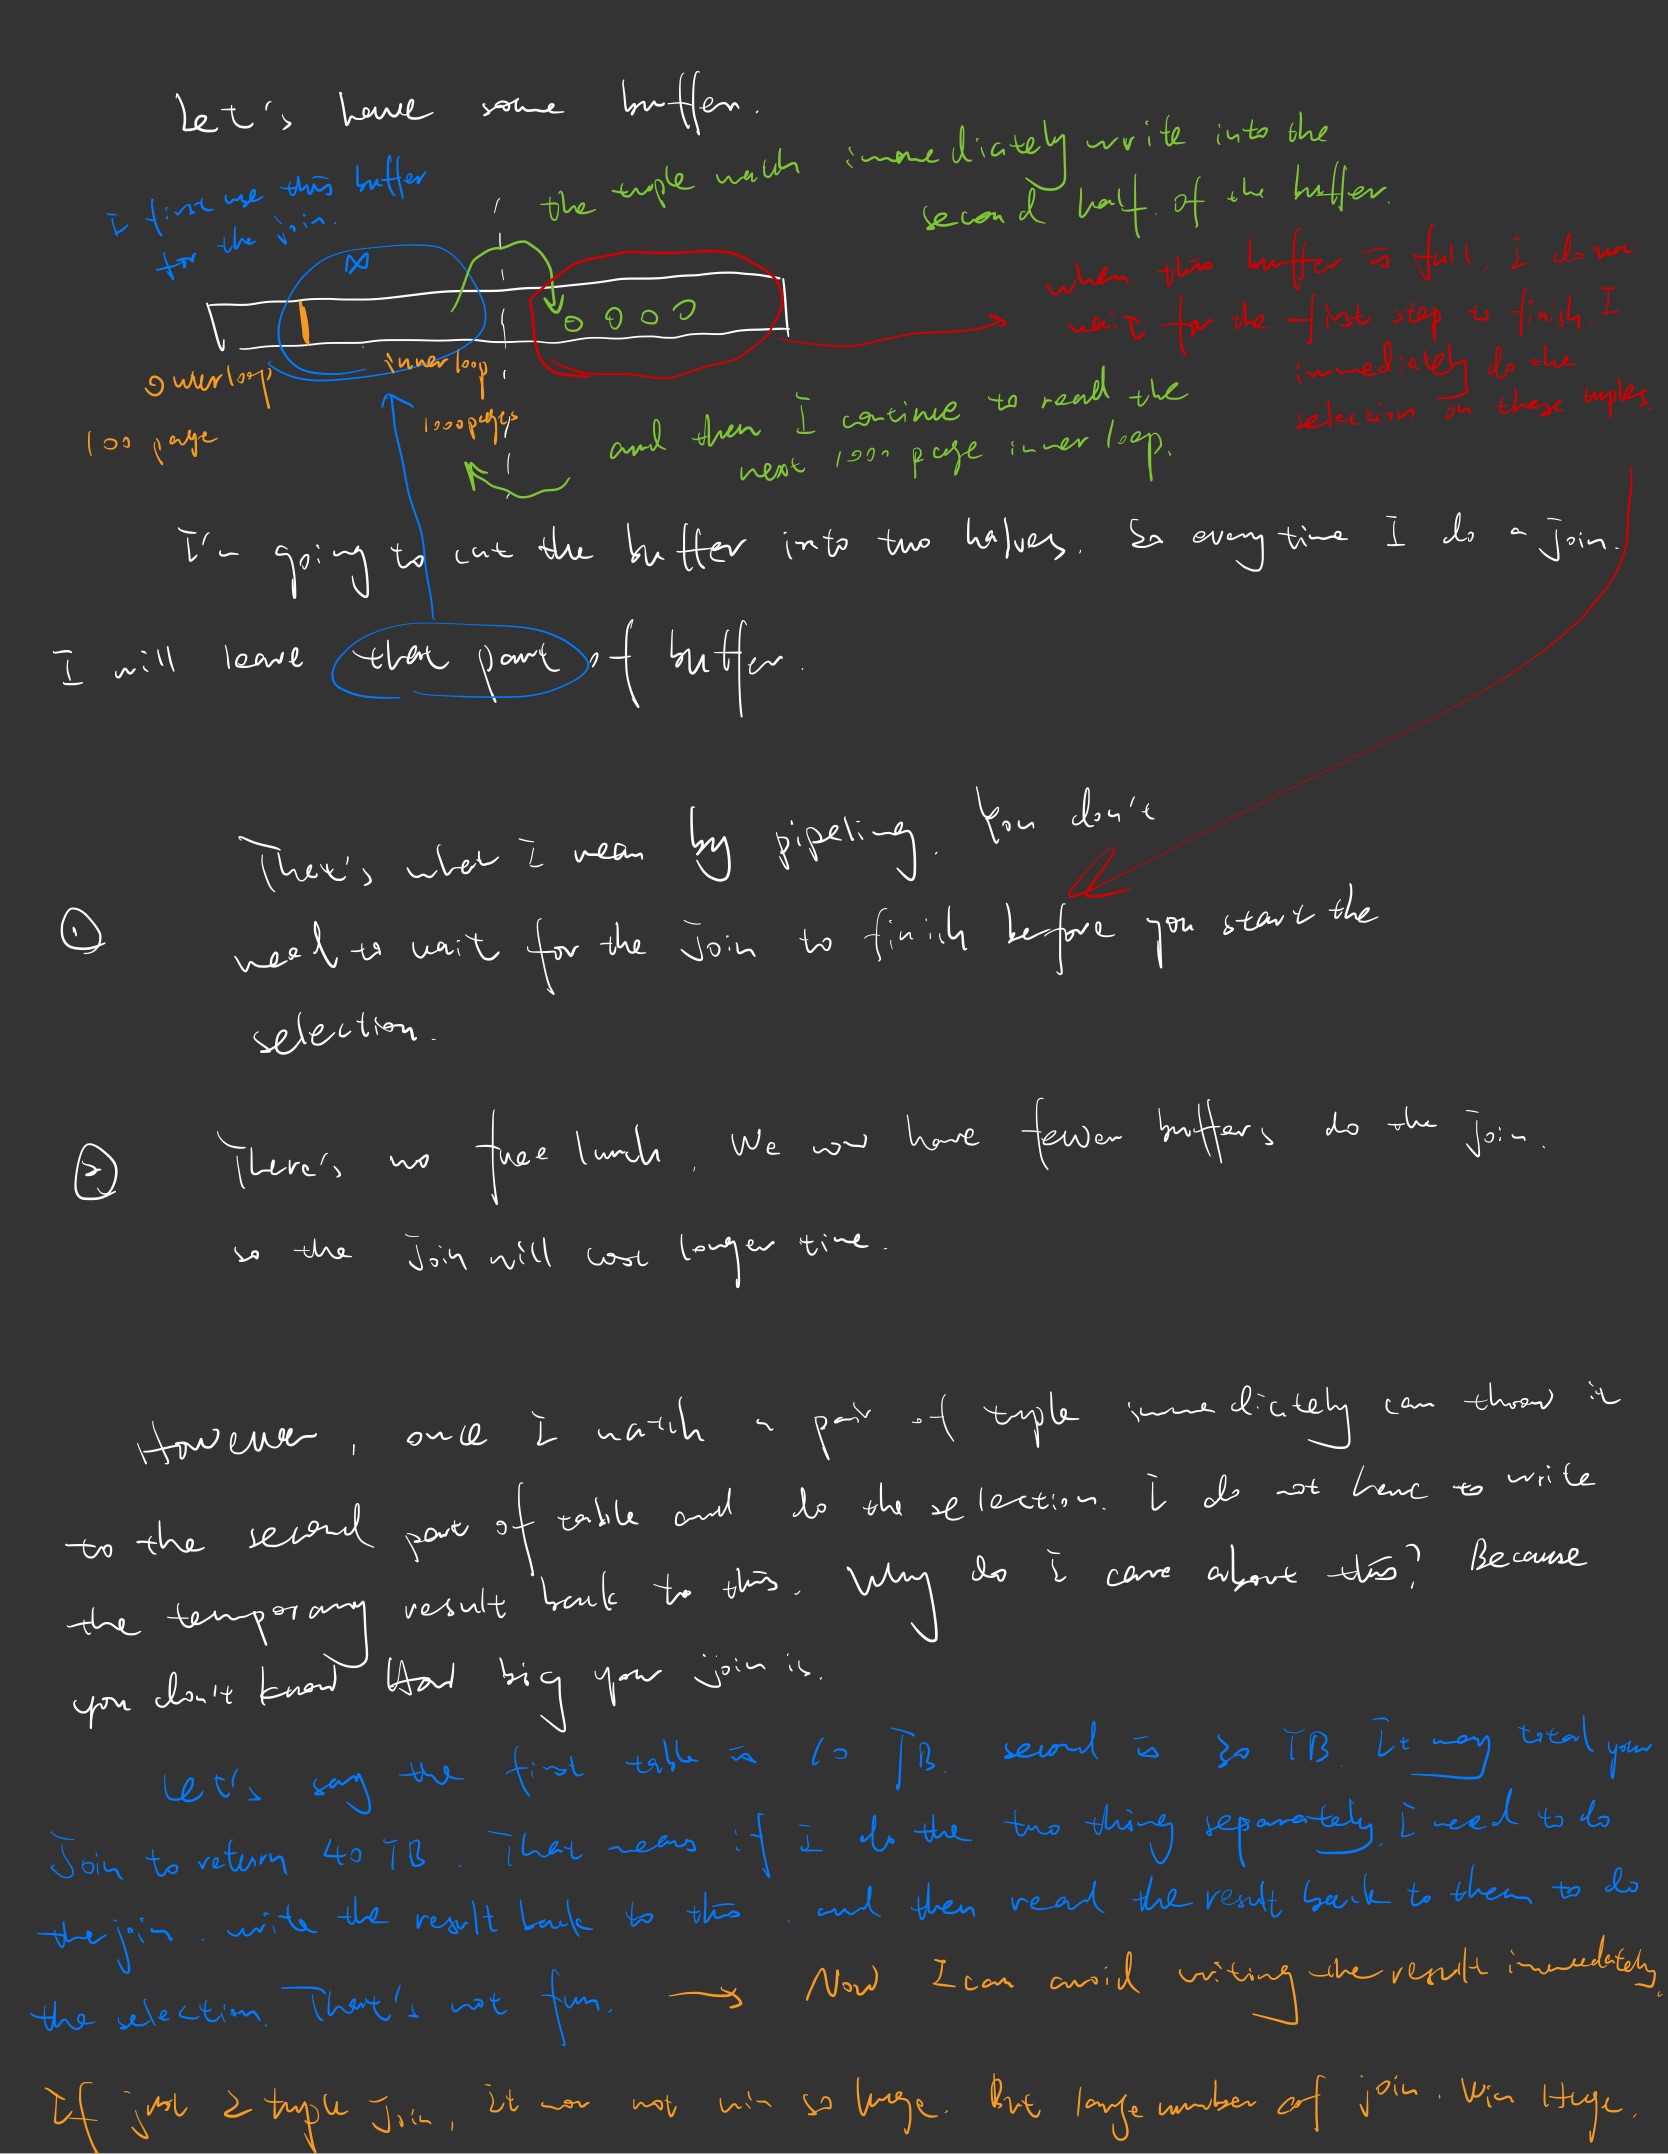 Let's have some buffer.
I first use this buffer
for the join.
the tuple match immediately write into the
second half of the buffer.
when this buffer is full, I do not
wait for the first step to finish. I
immediately do the
selection on these tuples.
outerloop
100 page
innerloop
1000 pages
and then I continue to read the
next 1000 page inner loop.
I'm going to cut the buffer into two halves. So every time I do a join.
I will leave that part of buffer.
① That's what I mean by pipeling. You don't
need to wait for the join to finish before you start the
selection.
② There's no free lunch. We now have fewer buffers do the join.
so the join will cost longer time.
However, once I match a pair of tuple immediately can throw it
to the second part of table and do the selection. I do not have to write
the temporary result back to this. Why do I care about this? Because
you don't know How big your join is.
Let's say the first table is 10 TB. second is 30 TB. It may total your
Join to return 40 TB. That means if I do the two thing separately, I need to do
the join. write the result back to this. and then read the result back to them to do
the selection. That's not fun. → Now I can avoid writing the result immediately.
If just 2 tuple join, it may not win so huge. But large number of join. Win Huge.